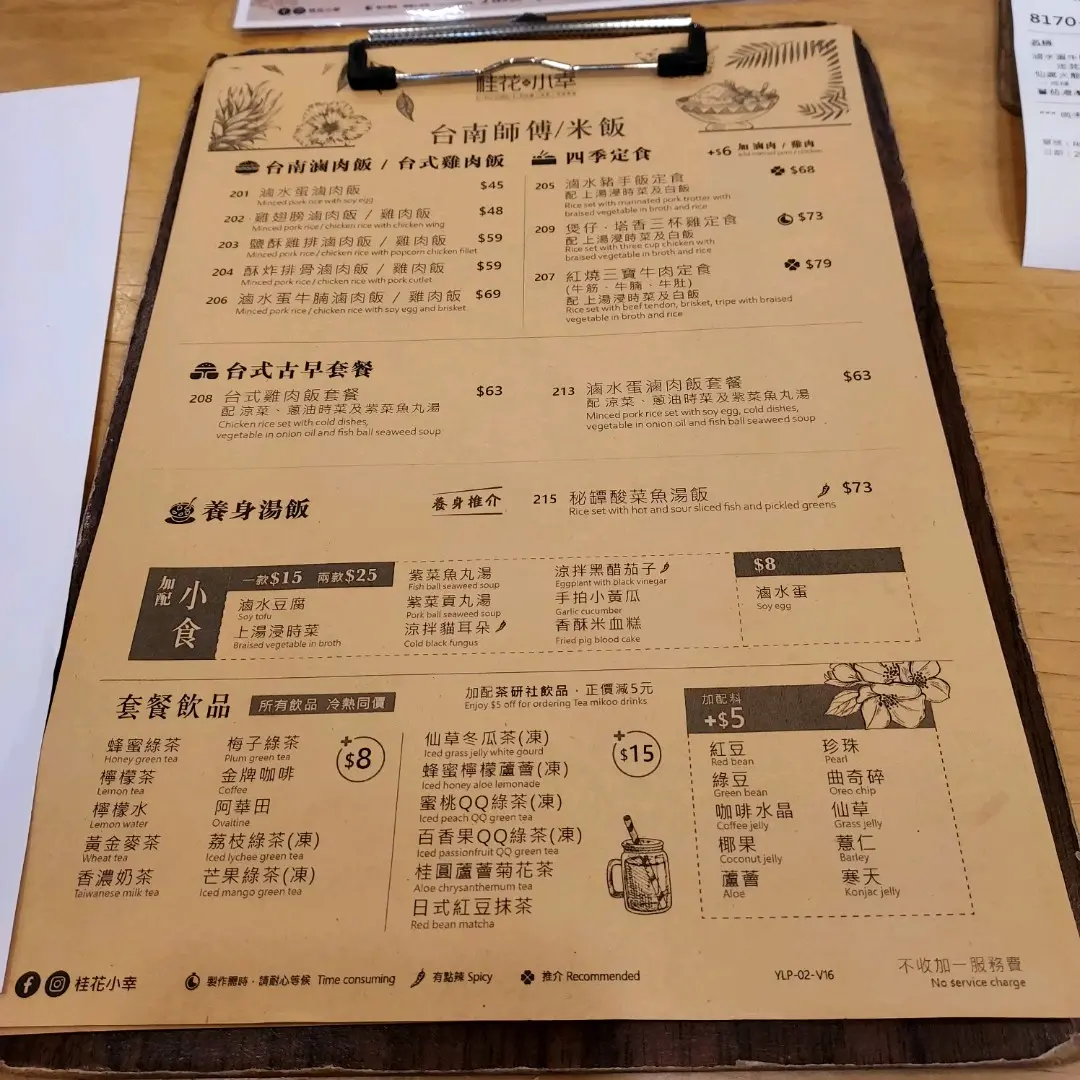 桂花小幸
台南師傅/米飯
台南滷肉飯 / 台式雞肉飯
201 滷水蛋滷肉飯 $45
Minced pork rice with soy egg
202 雞翅膀滷肉飯 / 雞肉飯 $48
Minced pork rice / chicken rice with chicken wing
203 鹽酥雞排滷肉飯 / 雞肉飯 $59
Minced pork rice / chicken rice with popcorn chicken fillet
204 酥炸排骨滷肉飯 / 雞肉飯 $59
Minced pork rice / chicken rice with pork cutlet
206 滷水蛋牛腩滷肉飯 / 雞肉飯 $69
Minced pork rice / chicken rice with soy egg and brisket
四季定食 +$6 加 滷肉 / 雞肉
205 滷水豬手飯定食 $68
配 上湯浸時菜及白飯
Rice set with marinated pork trotter with
braised vegetable in broth and rice
209 煲仔．塔香三杯雞定食 $73
配 上湯浸時菜及白飯
Rice set with three cup chicken with
braised vegetable in broth and rice
207 紅燒三寶牛肉定食 $79
(牛筋．牛腩．牛肚)
配 上湯浸時菜及白飯
Rice set with beef tendon, brisket, tripe with braised
vegetable in broth and rice
台式古早套餐
208 台式雞肉飯套餐 $63
配 涼菜、蔥油時菜及紫菜魚丸湯
Chicken rice set with cold dishes,
vegetable in onion oil and fish ball seaweed soup
213 滷水蛋滷肉飯套餐 $63
配 涼菜、蔥油時菜及紫菜魚丸湯
Minced pork rice set with soy egg, cold dishes,
vegetable in onion oil and fish ball seaweed soup
養身湯飯
養身推介
215 秘罈酸菜魚湯飯 $73
Rice set with hot and sour sliced fish and pickled greens
加配 小食
一款$15 兩款$25
滷水豆腐
Soy tofu
上湯浸時菜
Braised vegetable in broth
紫菜魚丸湯
Fish ball seaweed soup
紫菜貢丸湯
Pork ball seaweed soup
涼拌貓耳朵
Cold black fungus
涼拌黑醋茄子
Eggplant with black vinegar
手拍小黃瓜
Garlic cucumber
香酥米血糕
Fried pig blood cake
$8
滷水蛋
Soy egg
套餐飲品 所有飲品 冷熱同價
蜂蜜綠茶
Honey green tea
檸檬茶
Lemon tea
檸檬水
Lemon water
黃金麥茶
Wheat tea
香濃奶茶
Taiwanese milk tea
梅子綠茶
Plum green tea
金牌咖啡
Coffee
阿華田
Ovaltine
荔枝綠茶(凍)
Iced lychee green tea
芒果綠茶(凍)
Iced mango green tea
+$8
加配茶研社飲品．正價減5元
Enjoy $5 off for ordering Tea mikoo drinks
仙草冬瓜茶(凍)
Iced grass jelly white gourd
蜂蜜檸檬蘆薈(凍)
Iced honey aloe lemonade
蜜桃QQ綠茶(凍)
Iced peach QQ green tea
百香果QQ綠茶(凍)
Iced passionfruit QQ green tea
桂圓蘆薈菊花茶
Aloe chrysanthemum tea
日式紅豆抹茶
Red bean matcha
+$15
加配料
+$5
紅豆
Red bean
綠豆
Green bean
咖啡水晶
Coffee jelly
椰果
Coconut jelly
蘆薈
Aloe
珍珠
Pearl
曲奇碎
Oreo chip
仙草
Grass jelly
薏仁
Barley
寒天
Konjac jelly
桂花小幸
製作需時，請耐心等候 Time consuming
有點辣 Spicy
推介 Recommended
YLP-02-V16
不收加一服務費
No service charge
8170